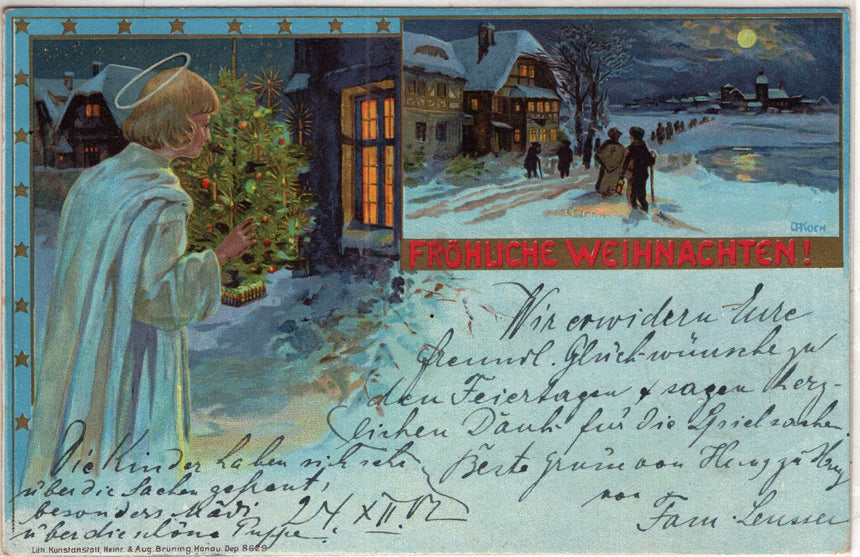 CTKOCH
FRÖHLICHE WEIHNACHTEN!
Wir erwidern Eure
freundl. Glückwünsche zu
den Feiertagen & sagen herz-
lichen Dank für die Spielsachen.
Beste Grüße von Haus zu Haus
von
Fam.
Die Kinder haben sich sehr
über die Sachen gefreut,
besonders Mädi
über die schöne Puppe.
24 XII. 02
Lith. Kunstanstalt, Heinr. & Aug. Brüning, Hanau. Dep 8629